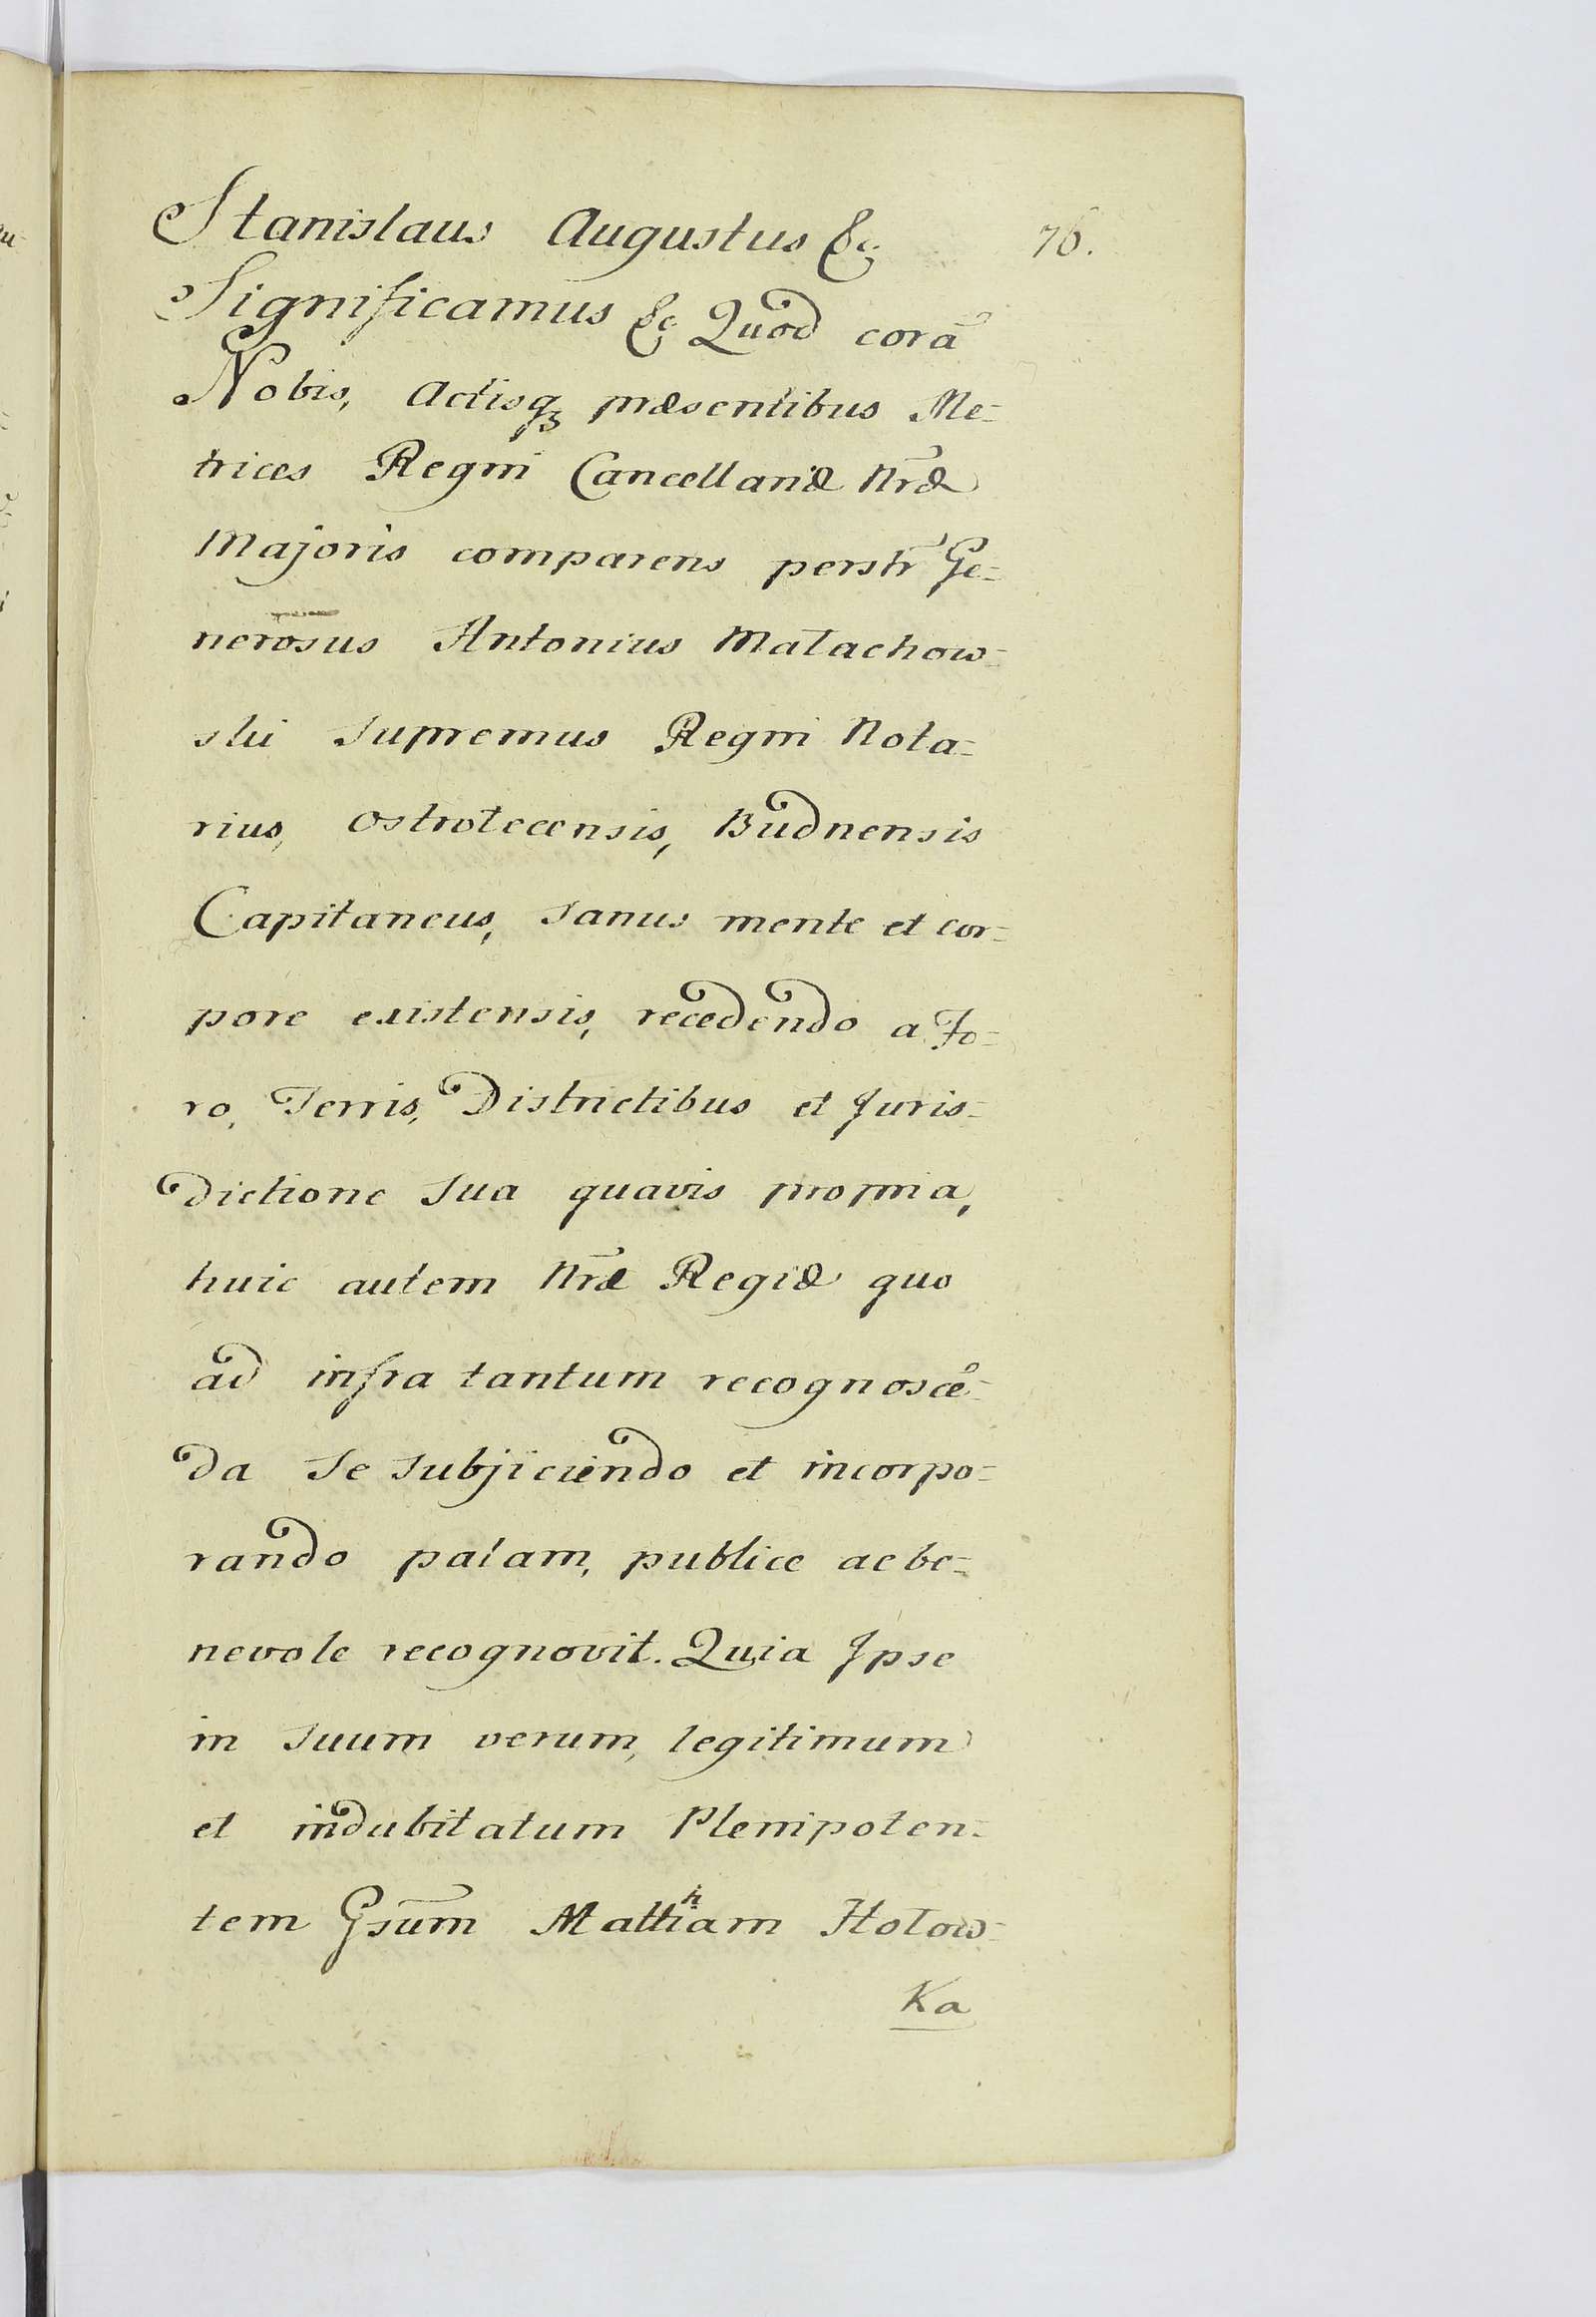 Stanislaus Augustus &c. 76.
Significamus &c Quod corā
Nobis, Actisqꝫ præsentibus Me=
trices Regni Cancellariæ Nr̄æ
Majoris comparens perstr̄ Ge=
nerosus Antonius Małachow=
ski Supremus Regni Nota=
rius, Ostrołecensis, Budnensis
Capitaneus, Sanus mente et cor=
pore existensis, recedendo a Fo=
ro, Terris, Districtibus et Juris=
dictione Sua quavis propria,
huic autem Nr̄æ Regiæ quo
ad infra tantum recognoscē=
da Se Subjiciendo et incorpo=
rando palam, publice ac be=
nevole recognovit. Quia Ipse
in Suum verum, legitimum
et indubitatum Plenipoten=
tem Gsūm Matthiam Hołow=
Ka